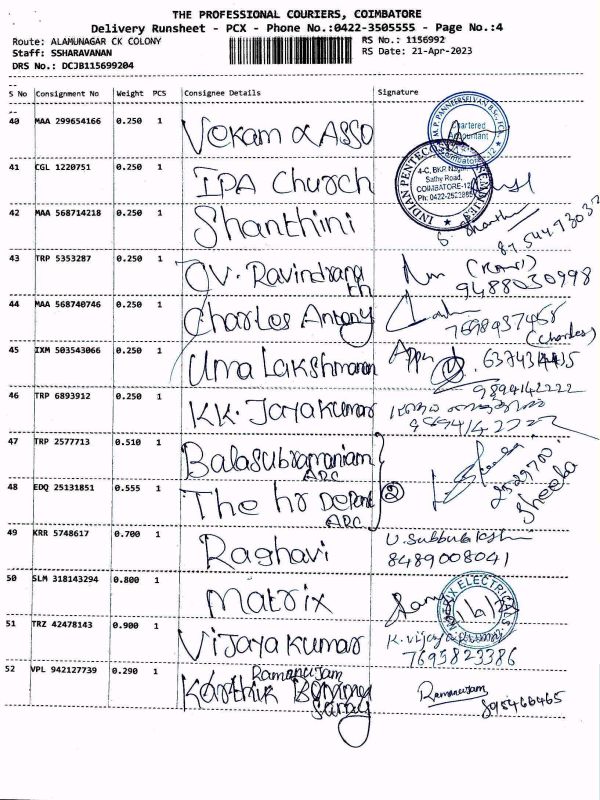 THE PROFESSIONAL COURIERS, COIMBATORE
Delivery Runsheet - PCX - Phone No.:0422-3505555 - Page No.:4
Route: ALAMUNAGAR CK COLONY RS No.: 1156992
Staff: SSHARAVANAN RS Date: 21-Apr-2023
DRS No.: DCJB115699204
S No Consignment No Weight PCS Consignee Details Signature
40 MAA 299654166 0.250 1 Vekam & ASSO
M.P. PANNEERSELVAN B.Sc, FCA
Chartered
Accountant
Coimbatore-12
41 CGL 1220751 0.250 1 IPA Church
4-C, BKR Nagar,
Sathy Road,
COIMBATORE-12
42 MAA 568714218 0.250 1 Shanthini
43 TRP 5353287 0.250 1 Ravindrana
th
9488030998
44 MAA 568740746 0.250 1 Charles Antony
7698937458
(Charles)
45 IXM 503543066 0.250 1 Uma Lakshmanan
46 TRP 6893912 0.250 1 KK. Jayakumar
9894142222
47 TRP 2577713 0.510 1 Balasubramaniam
ARC
48 EDQ 25131851 0.555 1 The hr Depant
ARC
2
Sheela
49 KRR 5748617 0.700 1 Raghavi
8489008041
50 SLM 318143294 0.800 1 Matrix
51 TRZ 42478143 0.900 1 Vijayakumar
K. Vijayakumar
7695823386
52 VPL 942127739 0.290 1 Ramanujam
Karthik
Ramanujam